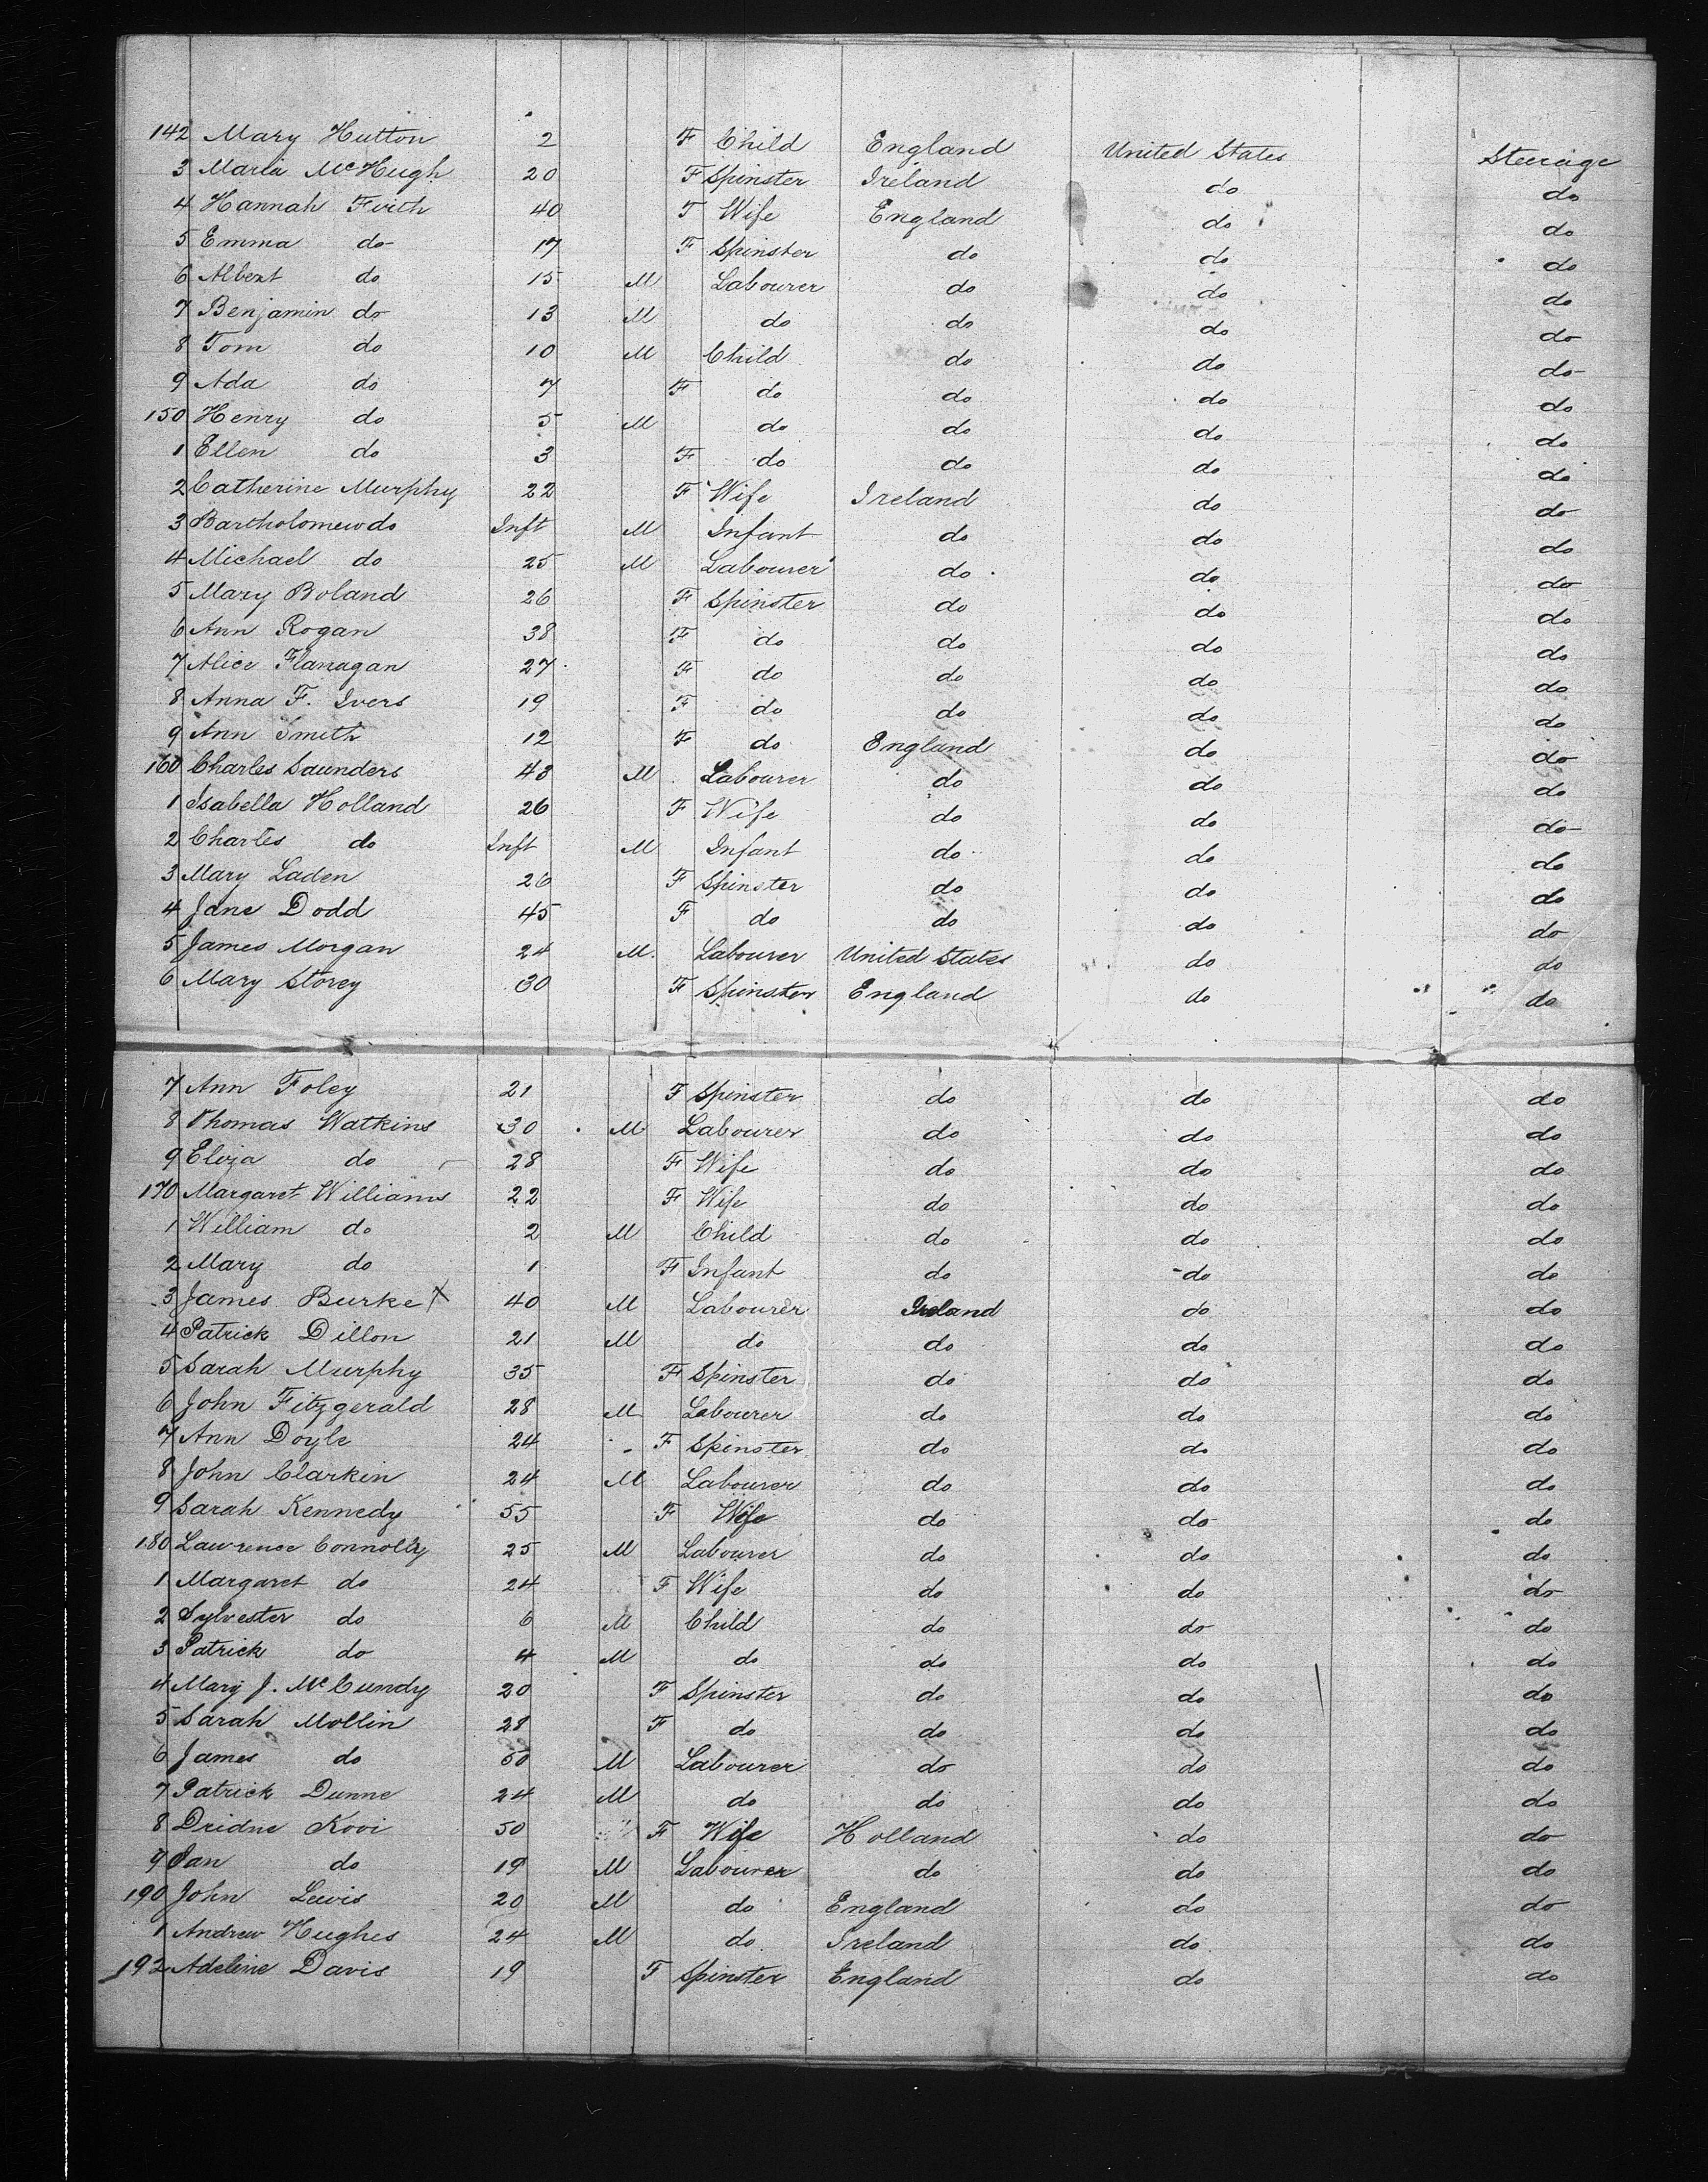 142 Mary Hutton 2 F Child England United States Steerage
3 Maria McHugh 20 F Spinster Ireland do do
4 Hannah Firth 40 F Wife England do do
5 Emma do 17 F Spinster do do do
6 Albert do 15 M Labourer do do do
7 Benjamin do 13 M do do do do
8 Tom do 10 M Child do do do
9 Ada do 7 F do do do do
150 Henry do 5 M do do do do
1 Ellen do 3 F do do do do
2 Catherine Murphy 22 F Wife Ireland do do
3 Bartholomew do Inft M Infant do do do
4 Michael do 25 M Labourer do do do
5 Mary Boland 26 F Spinster do do do
6 Ann Rogan 38 F do do do do
7 Alice Flanagan 27 F do do do do
8 Anna F. Ivers 19 F do do do do
9 Ann Smith 12 F do England do do
160 Charles Saunders 43 M Labourer do do do
1 Isabella Holland 26 F Wife do do do
2 Charles do Inft M Infant do do do
3 Mary Laden 26 F Spinster do do do
4 Jane Dodd 45 F do do do do
5 James Morgan 24 M. Labourer United States do do
6 Mary Storey 30 F Spinster England do do
7 Ann Foley 21 F Spinster do do do
8 Thomas Watkins 30 M Labourer do do do
9 Eliza do 28 F Wife do do do
170 Margaret Williams 22 F Wife do do do
1 William do 2 M Child do do do
2 Mary do 1 F Infant do do do
3 James Burke X 40 M Labourer Ireland do do
4 Patrick Dillon 21 M do do do do
5 Sarah Murphy 35 F Spinster do do do
6 John Fitzgerald 28 M Labourer do do do
7 Ann Doyle 24 F Spinster do do do
8 John Clarkin 24 M Labourer do do do
9 Sarah Kennedy 55 F Wife do do do
180 Lawrence Connolly 25 M Labourer do do do
1 Margaret do 24 F Wife do do do
2 Sylvester do 6 M Child do do do
3 Patrick do 4 M do do do do
4 Mary J. McCundy 20 F Spinster do do do
5 Sarah Mollin 28 F do do do do
6 James do 50 M Labourer do do do
7 Patrick Dunne 24 M do do do do
8 Dridne Kovi 50 F Wife Holland do do
9 Jan do 19 M Labourer do do do
190 John Lewis 20 M do England do do
1 Andrew Hughes 24 M do Ireland do do
192 Adeline Davis 19 F Spinster England do do